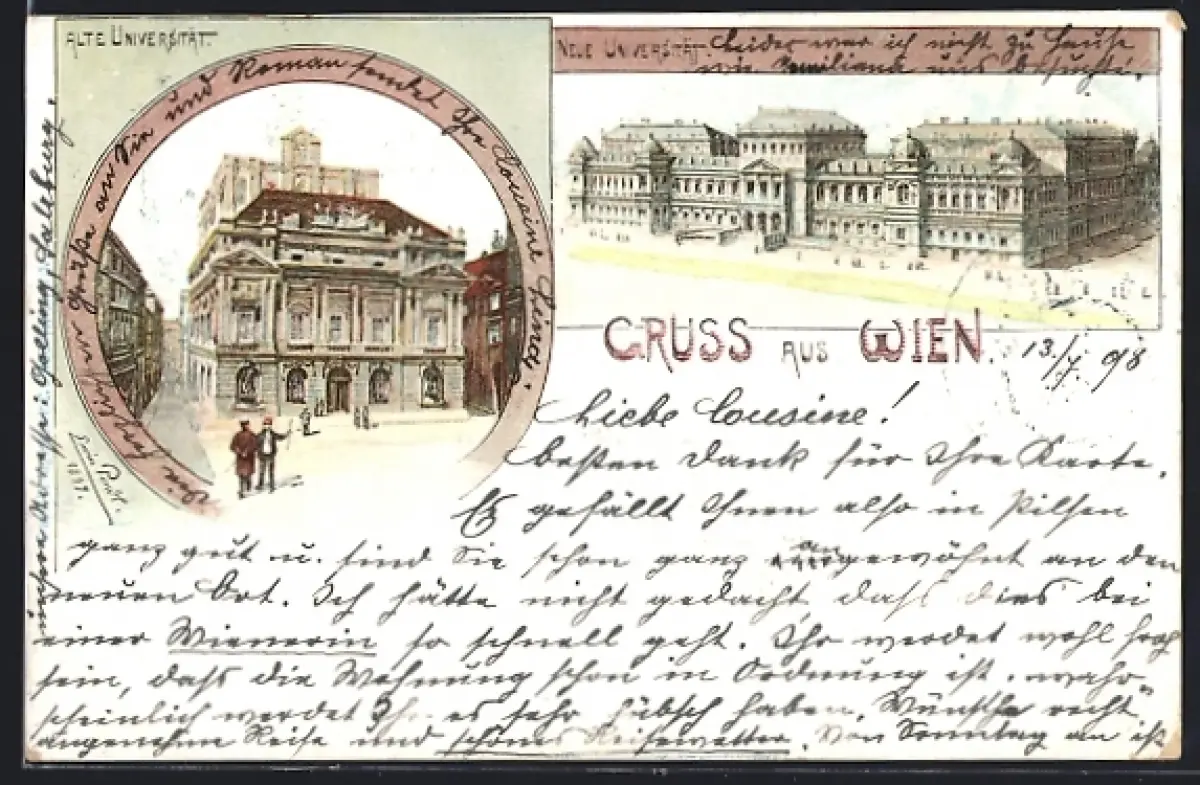 ALTE UNIVERSITÄT.
NEUE UNIVERSITÄT.
Leider war ich nicht zu Hause
wie Emiliana uns besuchte.
GRUSS AUS WIEN.
13./7. 98
Liebe Cousine!
besten Dank für Ihre Karte.
Es gefällt Ihnen also in Pilsen
ganz gut u. sind Sie schon ganz angewöhnt an den
neuen Ort. Ich hätte nicht gedacht dass dies bei
einer Wienerin so schnell geht. Ihr werdet wohl froh
sein, dass die Wohnung schon in Ordnung ist. wahr
scheinlich werdet Ihr es sehr hübsch haben. Wünsche recht
angenehme Reise und schönes Reisewetter. Von Sonntag an ist
unsere Adresse: Golling, Salzburg.
Grüße an Sie und Roman sendet Ihre Cousine
1897.